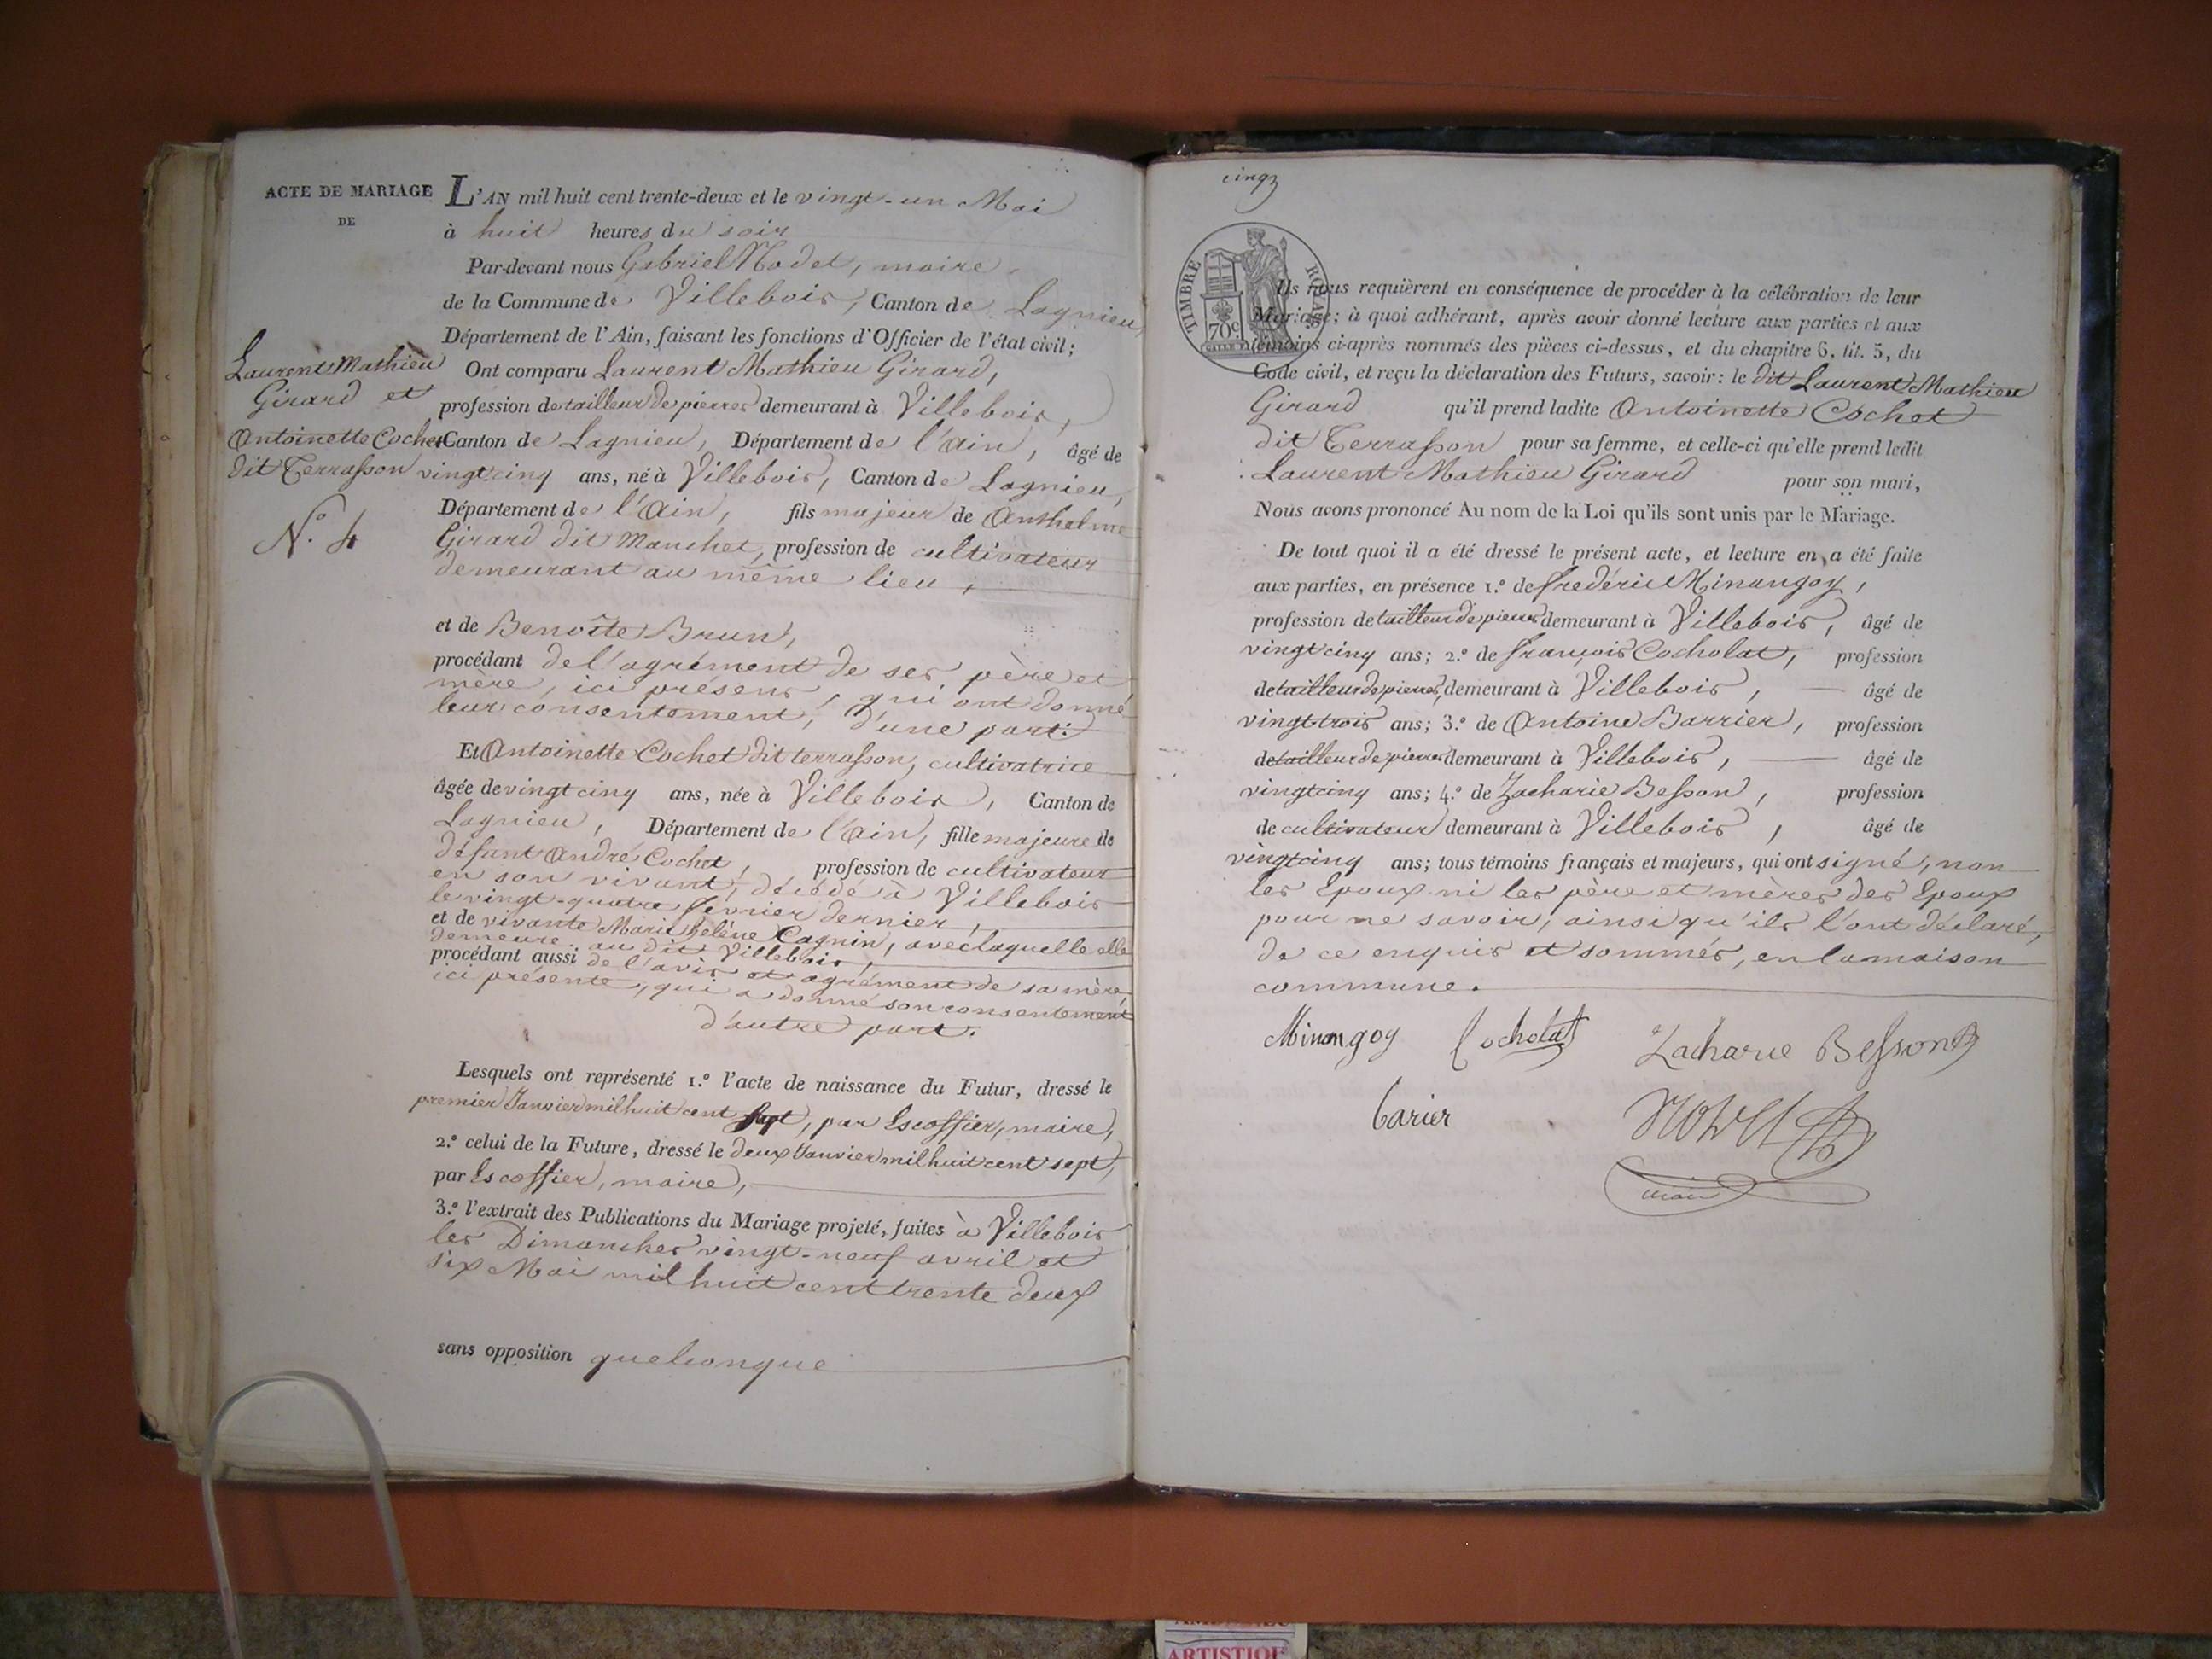 ACTE DE MARIAGE
DE
Laurent Mathieu
Girard et
Antoinette Cochet
dit Terrasson
N.º 4
L'AN mil huit cent trente-deux et le vingt-un Mai
à huit heures du soir
Par-devant nous Gabriel Nodet, maire
de la Commune de Villebois, Canton de Lagnieu,
Département de l'Ain, faisant les fonctions d'Officier de l'état civil;
Ont comparu Laurent Mathieu Girard,
profession de tailleur de pierres demeurant à Villebois,
Canton de Lagnieu, Département de l'Ain, âgé de
vingt cinq ans, né à Villebois, Canton de Lagnieu,
Département de l'Ain, fils majeur de Anthelme
Girard dit Manchet, profession de cultivateur
demeurant au même lieu,
et de Benoîte Brun,
procédant de l'agrément de ses père et
mère, ici présens, qui ont donné
leur consentement, d'une part.
Et Antoinette Cochet dit terrasson, cultivatrice
âgée de vingt cinq ans, née à Villebois, Canton de
Lagnieu, Département de l'Ain, fille majeure de
défunt André Cochet, profession de cultivateur
en son vivant, décédé à Villebois
le vingt-quatre février dernier,
et de vivante Marie hélène Cagnin, avec laquelle elle
demeure au dit Villebois,
procédant aussi de l'avis et agrément de sa mère,
ici présente, qui a donné son consentement
d'autre part.
Lesquels ont représenté 1.º l'acte de naissance du Futur, dressé le
premier Janvier mil huit cent sept, par Escoffier, maire,
2.º celui de la Future, dressé le deux Janvier mil huit cent sept,
par Escoffier, maire,
3.º l'extrait des Publications du Mariage projeté, faites à Villebois
les Dimanches vingt-neuf avril et
six Mai mil huit cent trente deux
sans opposition quelconque
cinq
TIMBRE ROYAL
70c
Ils nous requièrent en conséquence de procéder à la célébration de leur
Mariage; à quoi adhérant, après avoir donné lecture aux parties et aux
témoins ci-après nommés des pièces ci-dessus, et du chapitre 6, tit. 5, du
Code civil, et reçu la déclaration des Futurs, savoir: le dit Laurent Mathieu
Girard qu'il prend ladite Antoinette Cochet
dit Terrasson pour sa femme, et celle-ci qu'elle prend ledit
Laurent Mathieu Girard pour son mari,
Nous avons prononcé Au nom de la Loi qu'ils sont unis par le Mariage.
De tout quoi il a été dressé le présent acte, et lecture en a été faite
aux parties, en présence 1.º de frédéric Minangoy,
profession de tailleur de pierres demeurant à Villebois, âgé de
vingt cinq ans; 2.º de françois Cocholat, profession
de tailleur de pierres, demeurant à Villebois, âgé de
vingt trois ans; 3.º de Antoine Barrier, profession
de tailleur de pierres demeurant à Villebois, âgé de
vingt cinq ans; 4.º de Zacharie Besson, profession
de cultivateur demeurant à Villebois, âgé de
vingt cinq ans; tous témoins français et majeurs, qui ont signé, non
les Epoux ni les père et mères des Epoux
pour ne savoir, ainsi qu'ils l'ont déclaré,
de ce enquis et sommés, en la maison
commune.
Minangoy Cocholat Zacharie Besson
barier Nodet
maire
ARTISTIQUE